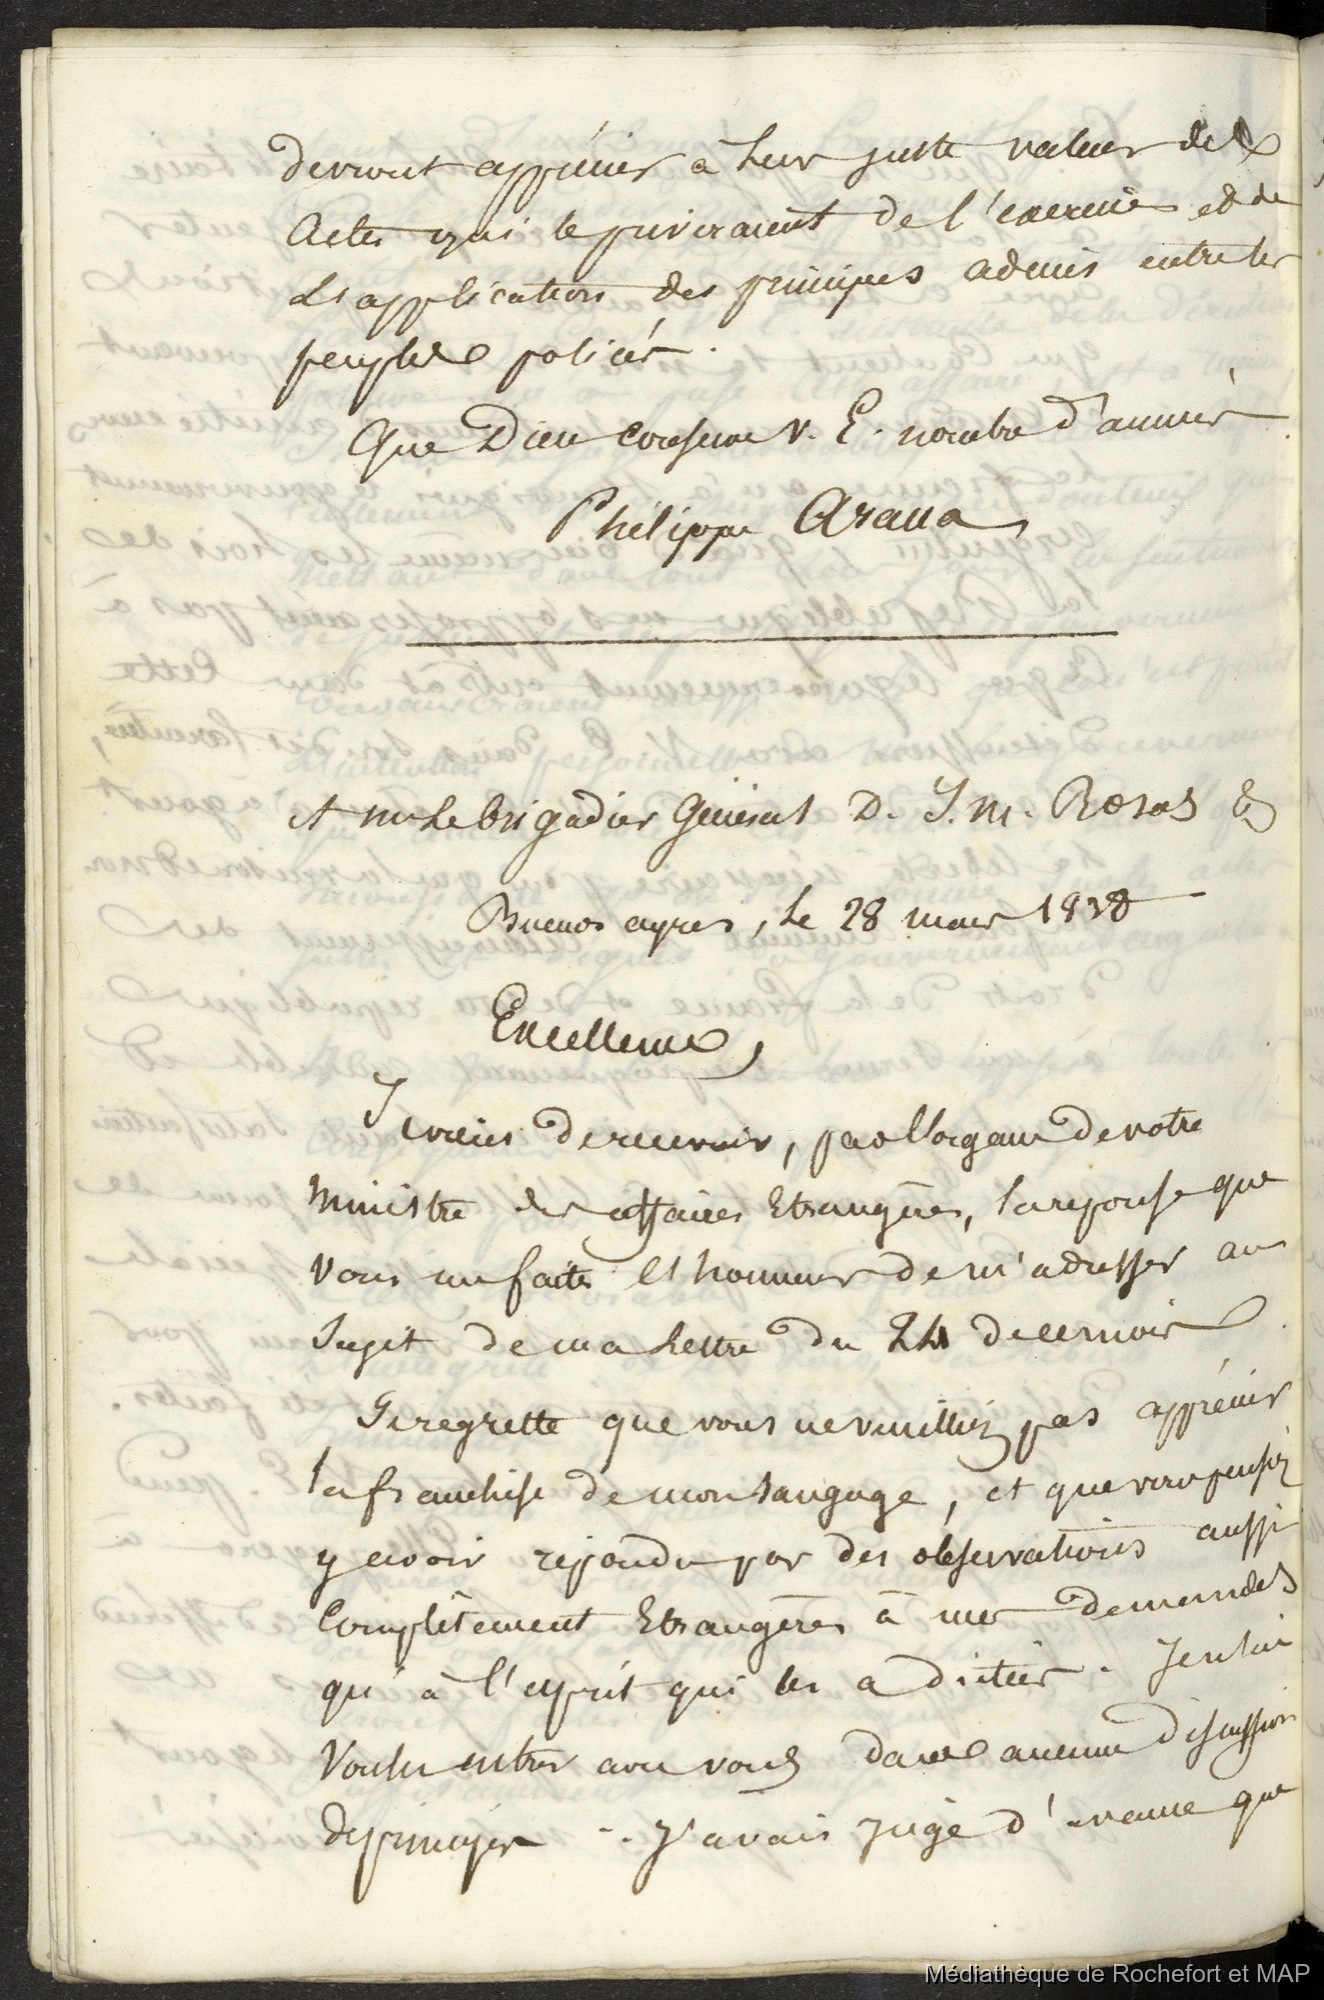 devront apprécier à leur juste valeur des
Actes qui le priveraient de l'exercice et de
l'application des principes admis entre les
peuples policés.
Que Dieu conserve V. E. nombre d'années
Philippe Arana
A Mr le brigadier Général D. J. M. Rosas &
Buenos ayres, le 28 mars 1838
Excellence,
Je viens de recevoir, par l'organe de votre
Ministre des affaires Etrangères, la réponse que
vous me faites l'honneur de m'adresser au
Sujet de ma lettre du 24 de ce mois
Je regrette que vous ne veuilliez pas apprécier
la franchise de mon langage, et que vous pensiez
y avoir répondu par des observations aussi
Complètement Etrangères à mes demandes
qu'à l'esprit qui les a dictées. Je n'ai
Voulu entrer avec vous dans aucune discussion
de principes. J'avais jugé d'avance que
Médiathèque de Rochefort et MAP